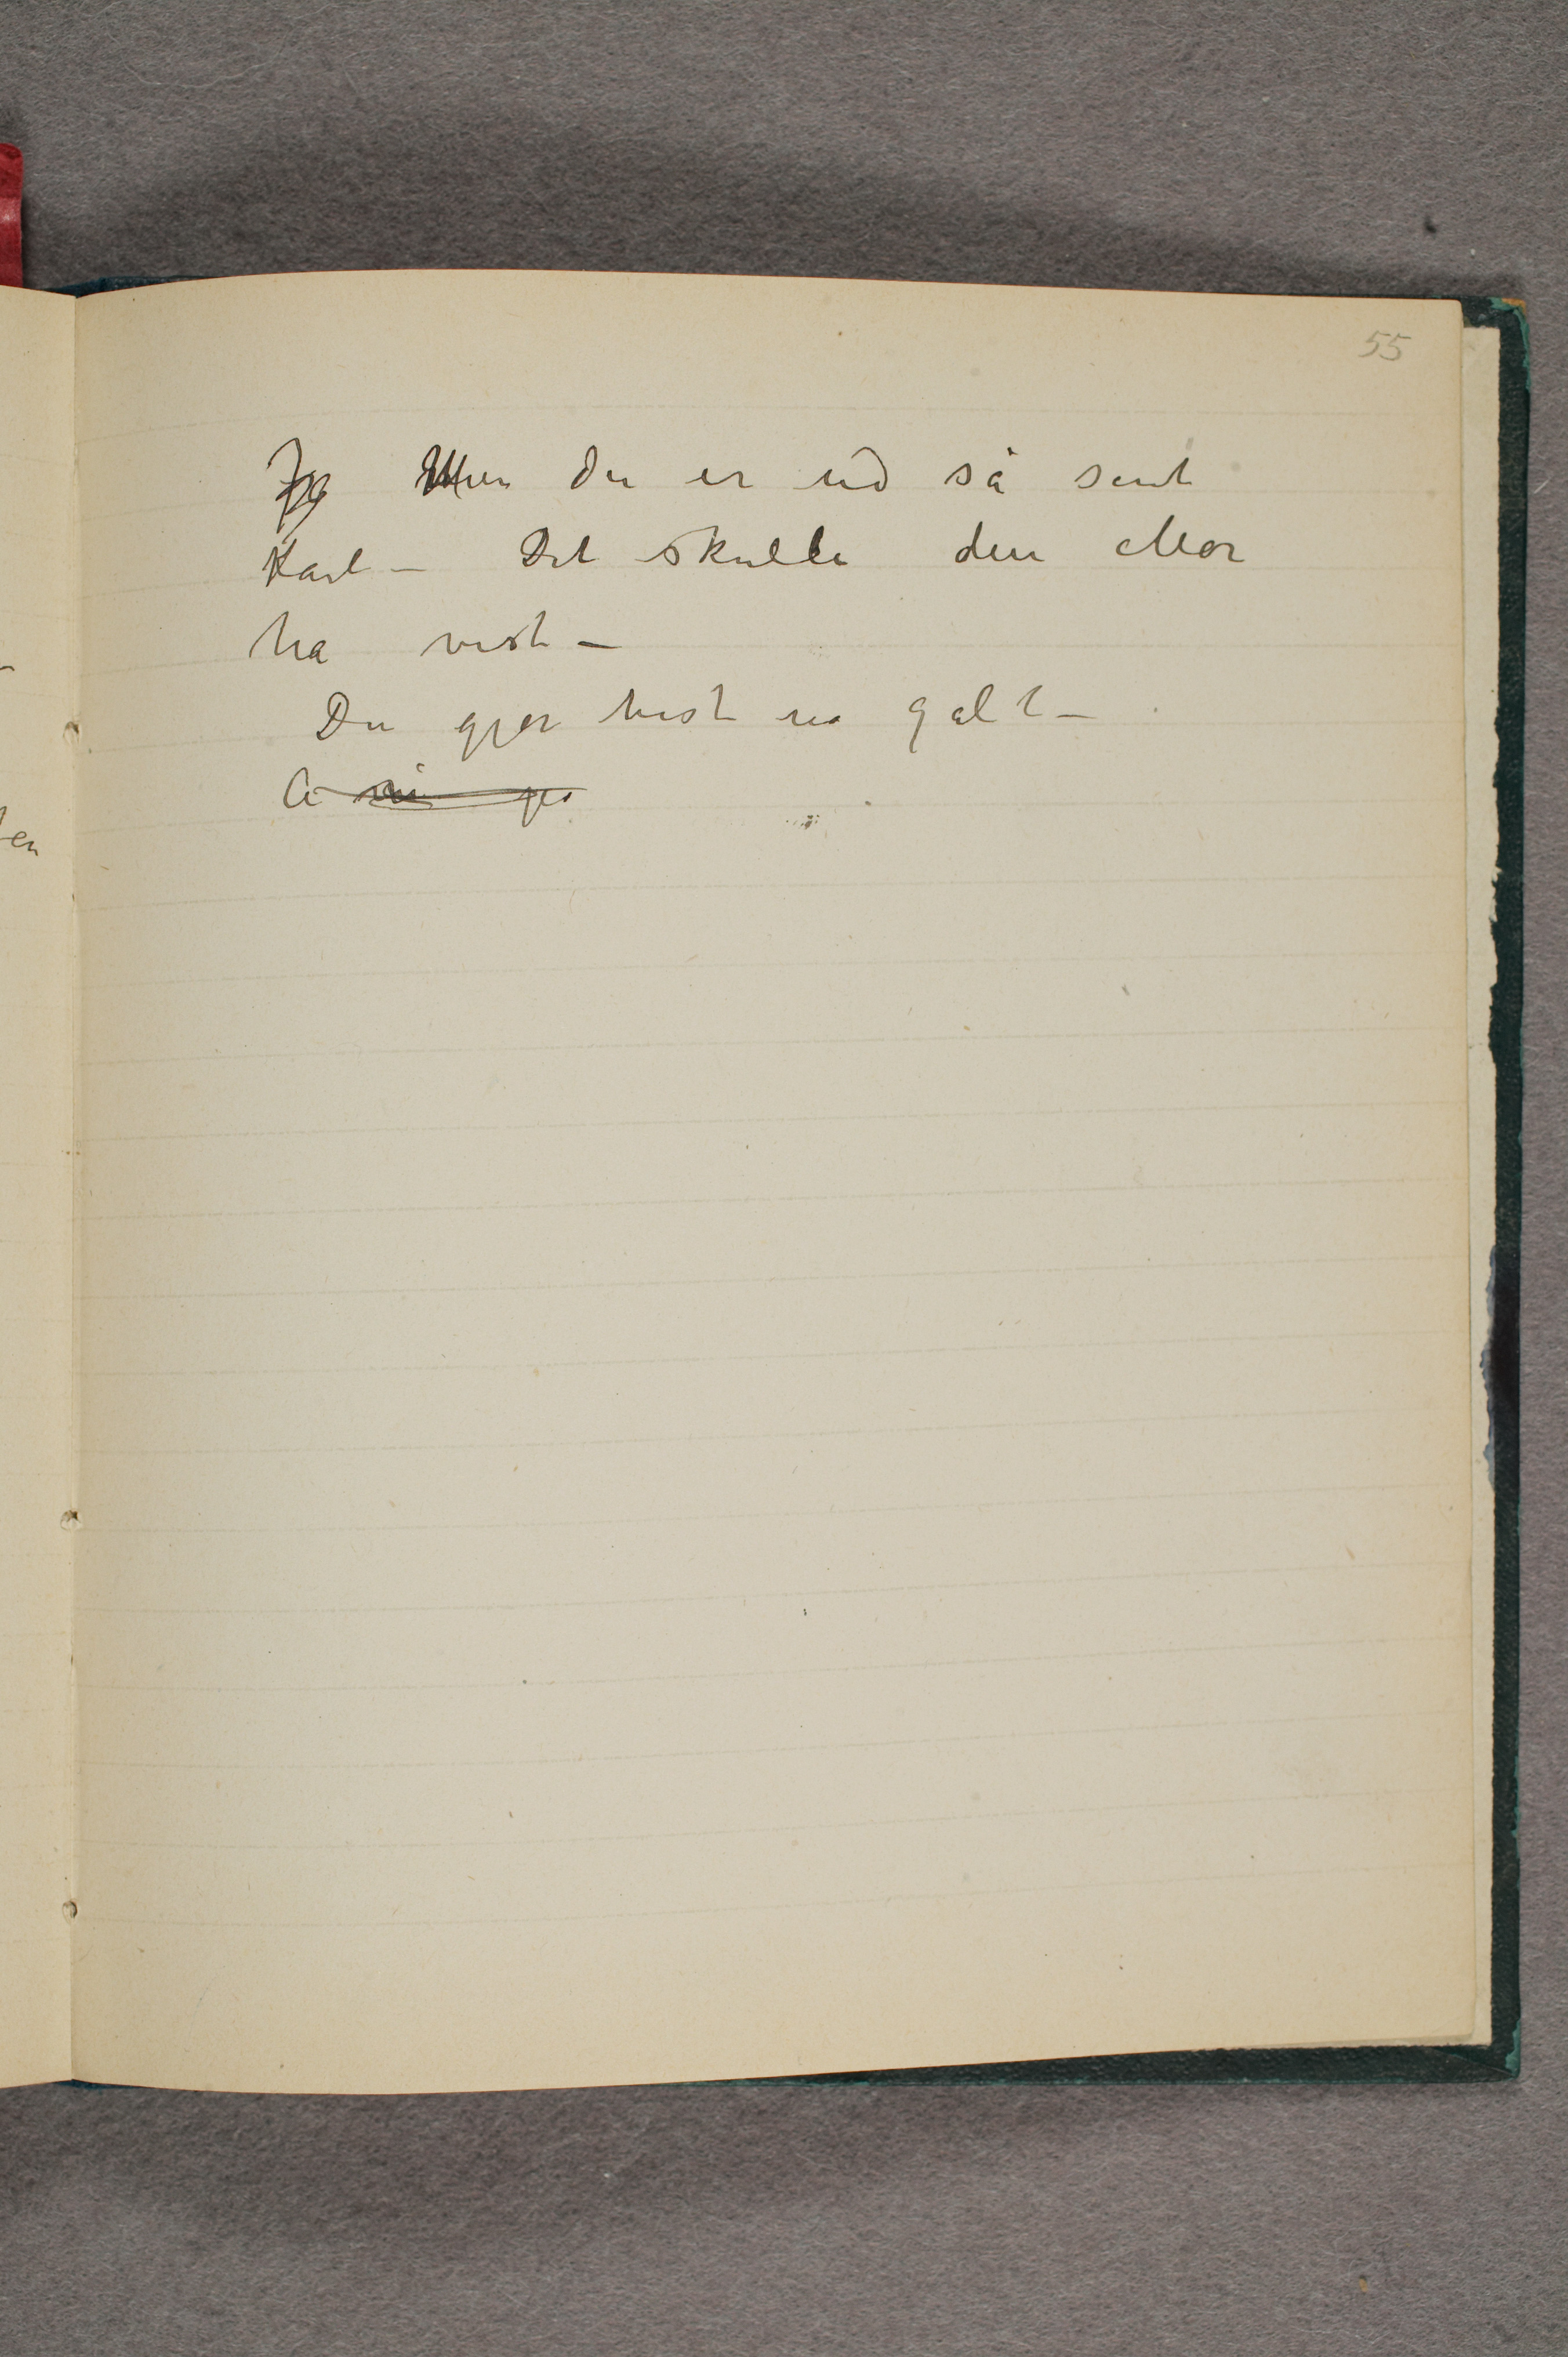 55
Jeg Men du er ud så sent
Karl – Det skulde din Mor
ha vist –
Du gjør vist no galt –